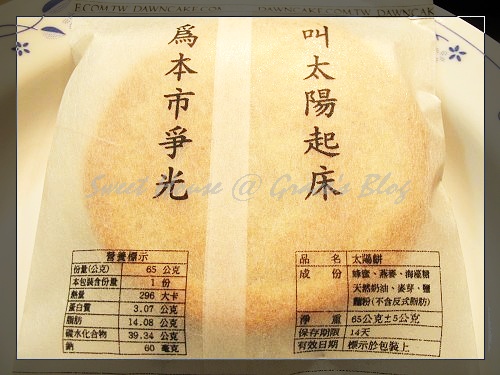 E.COM.TW DAWNCAKE.COM.TW DAWNCAK
叫太陽起床
爲本市爭光
Sweet House @ Grace's Blog
營養標示
份量(公克) 65 公克
本包裝含份量 1 份
熱量 296 大卡
蛋白質 3.07 公克
脂肪 14.08 公克
碳水化合物 39.34 公克
鈉 60 毫克
品名 太陽餅
成份 蜂蜜、燕麥、海藻糖
天然奶油、麥芽、鹽
麵粉(不含反式脂肪)
淨重 65公克±5公克
保存期限 14天
有效日期 標示於包裝上